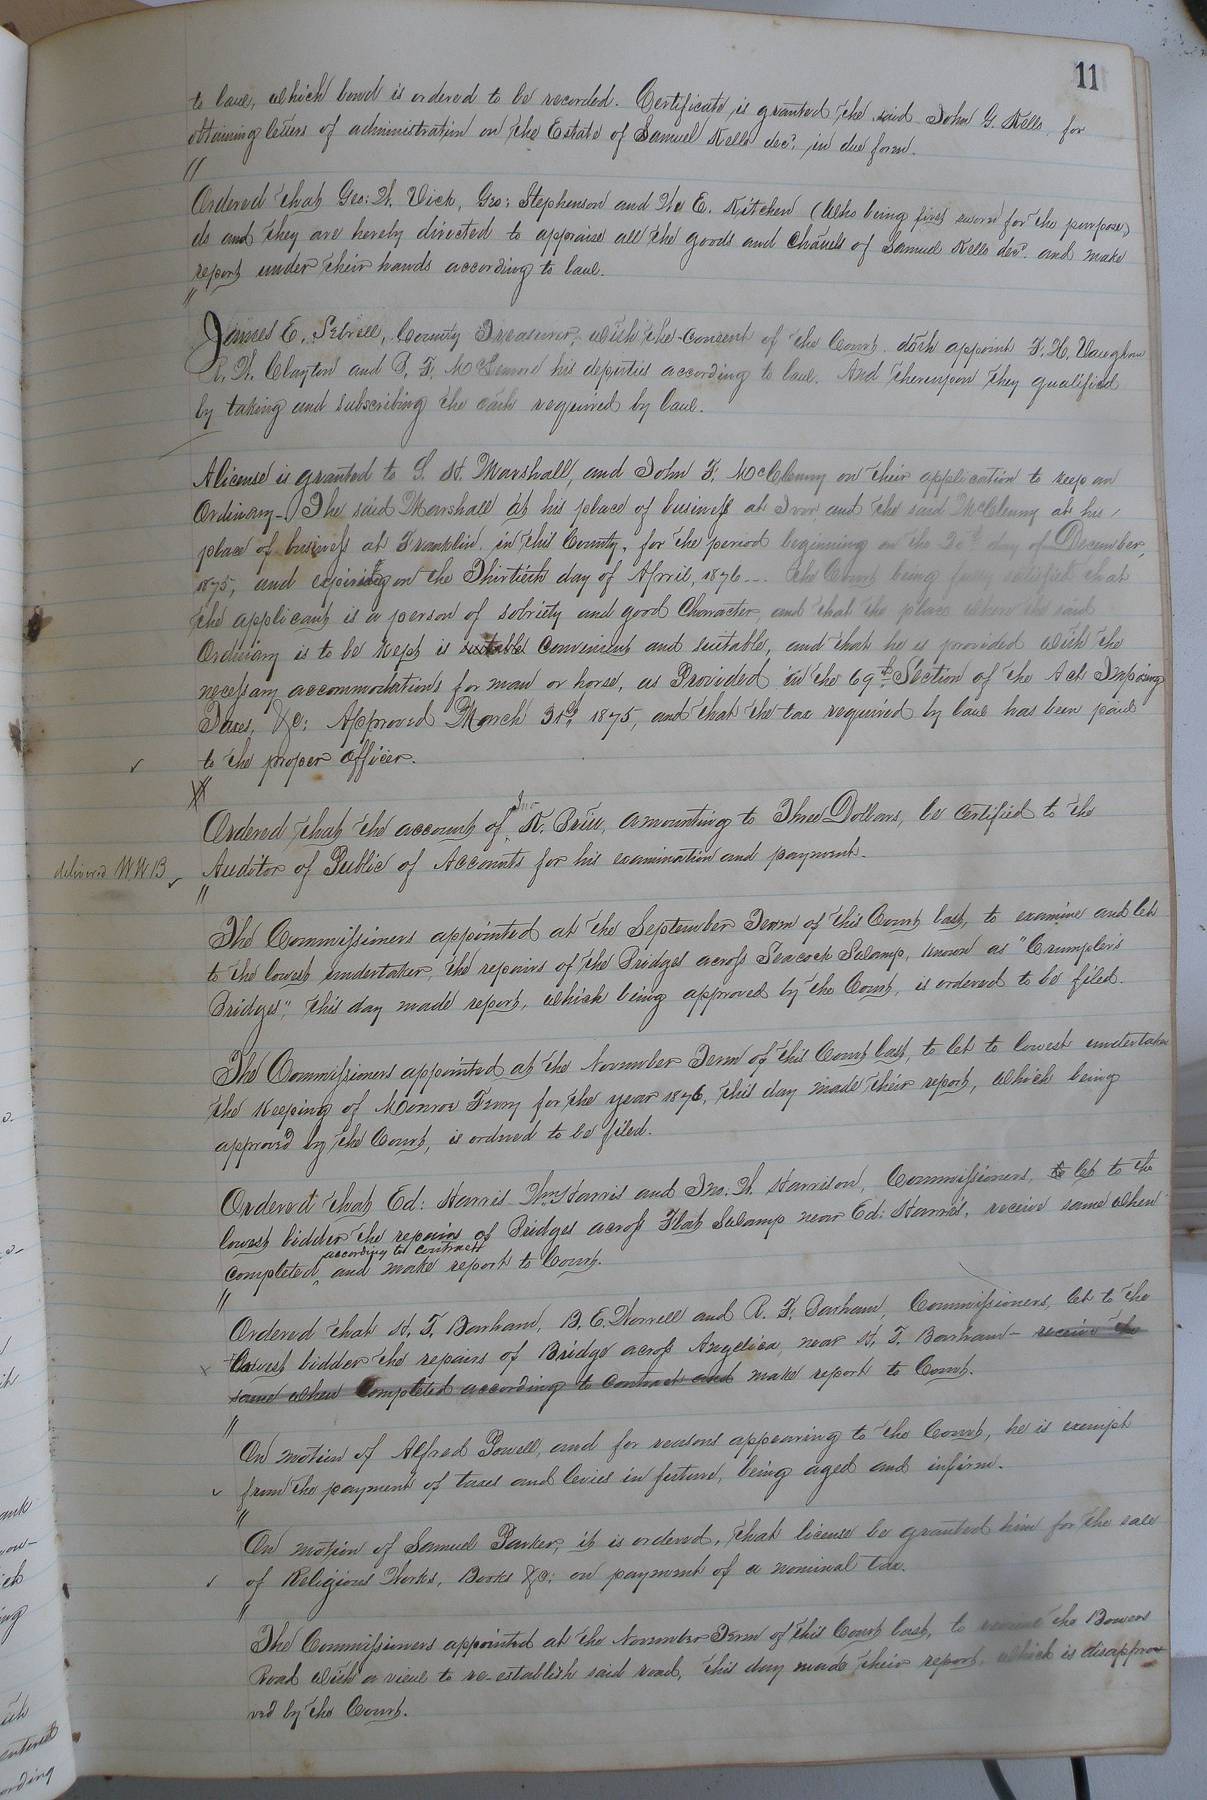 11
to law, which bond is ordered to be recorded. Certificate is granted the said John G. Kello for
obtaining letters of administration on the Estate of Samuel Kello decd. in due form.
"
Ordered that Geo: W. Vick, Geo: Stephenson and Wm E. Kitchen (who being first sworn for the purpose)
do and they are hereby directed to appraise all the goods and chattels of Samuel Kello decd. and make
report under their hands according to law.
"
James E. Sebrell, County Treasurer, with the consent of the Court doth appoint F. H. Vaughan
R. W. Clayton and P. F. his deputies according to law. And thereupon they qualified
by taking and subscribing the oath required by law.
A license is granted to S. H. Marshall, and John F. McClenny on their application to keep an
Ordinary - The said Marshall at his place of business at Ivor and the said McClenny at his
place of business at Franklin in this County, for the period beginning on the 20th day of December,
1875, and expiring on the Thirtieth day of April, 1876 -- The Court being fully satisfied that
the applicant is a person of sobriety and good Character, and that the place where the said
Ordinary is to be kept is suitable convenient and suitable, and that he is provided with the
necessary accommodations for man or horse, as Provided in the 69th Section of the Act Imposing
Taxes, &c; Approved March 31st 1875, and that the tax required by law has been paid
to the proper officer.
"
Ordered that the account of Jno K. Britt, amounting to Three Dollars, be certified to the
delivered WWB Auditor of Public of Accounts for his examination and payment.
"
The Commissioners appointed at the September Term of this Court last, to examine and let
to the lowest undertaker, the repairs of the Bridges across Seacock Swamp, known as "Crumpler's
Bridges", this day made report, which being approved by the Court, is ordered to be filed.
The Commissioners appointed at the November Term of this Court last, to let to lowest undertaker
the keeping of Monroe Ferry for the year 1876, this day made their report, which being
approved by the Court, is ordered to be filed.
Ordered that Ed: Harris Wm Harris and Jno. W. Harrison, Commissioners, to let to the
lowest bidder the repairs of Bridges across Flat Swamp near Ed: Harris', receive same when
completed according to contract and make report to Court.
"
Ordered that H. T. Barham, B. E. Worrell and R. F. Barham, Commissioners, let to the
lowest bidder the repairs of Bridge across Angelica, near H. T. Barham - receive the
same when completed according to contract and make report to Court.
"
On motion of Alfred Powell, and for reasons appearing to the Court, he is exempt
from the payment of taxes and levies in future, being aged and infirm.
"
On motion of Samuel Parker, it is ordered, that license be granted him for the sale
of Religious Works, Books &c; on payment of a nominal tax.
"
The Commissioners appointed at the November Term of this Court last, to the Bowers
Road with a view to re-establish said road, this day made their report, which is disappro-
ved by the Court.